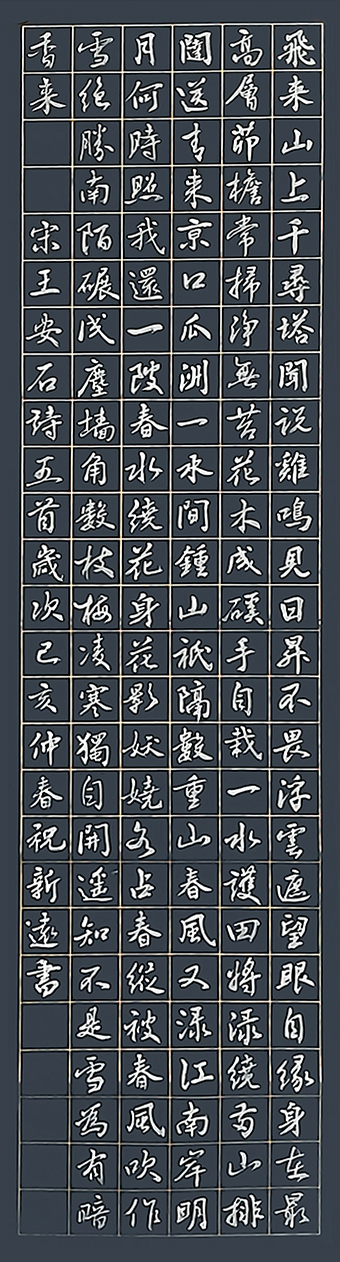 飛来山上千尋塔聞説雞鳴見日昇不畏浮雲遮望眼自緣身在最
高層茆檐常掃淨無苔花木成磎手自栽一水護田將渌繞兩山排
闥送青来京口瓜洲一水間鍾山祇隔數重山春風又渌江南岸明
月何時照我還一陂春水繞花身花影妖嬈各占春縱被春風吹作
雪絶勝南陌碾成塵墻角數枝梅凌寒獨自開遥知不是雪為有暗
香来 宋王安石詩五首歲次己亥仲春祝新遠書